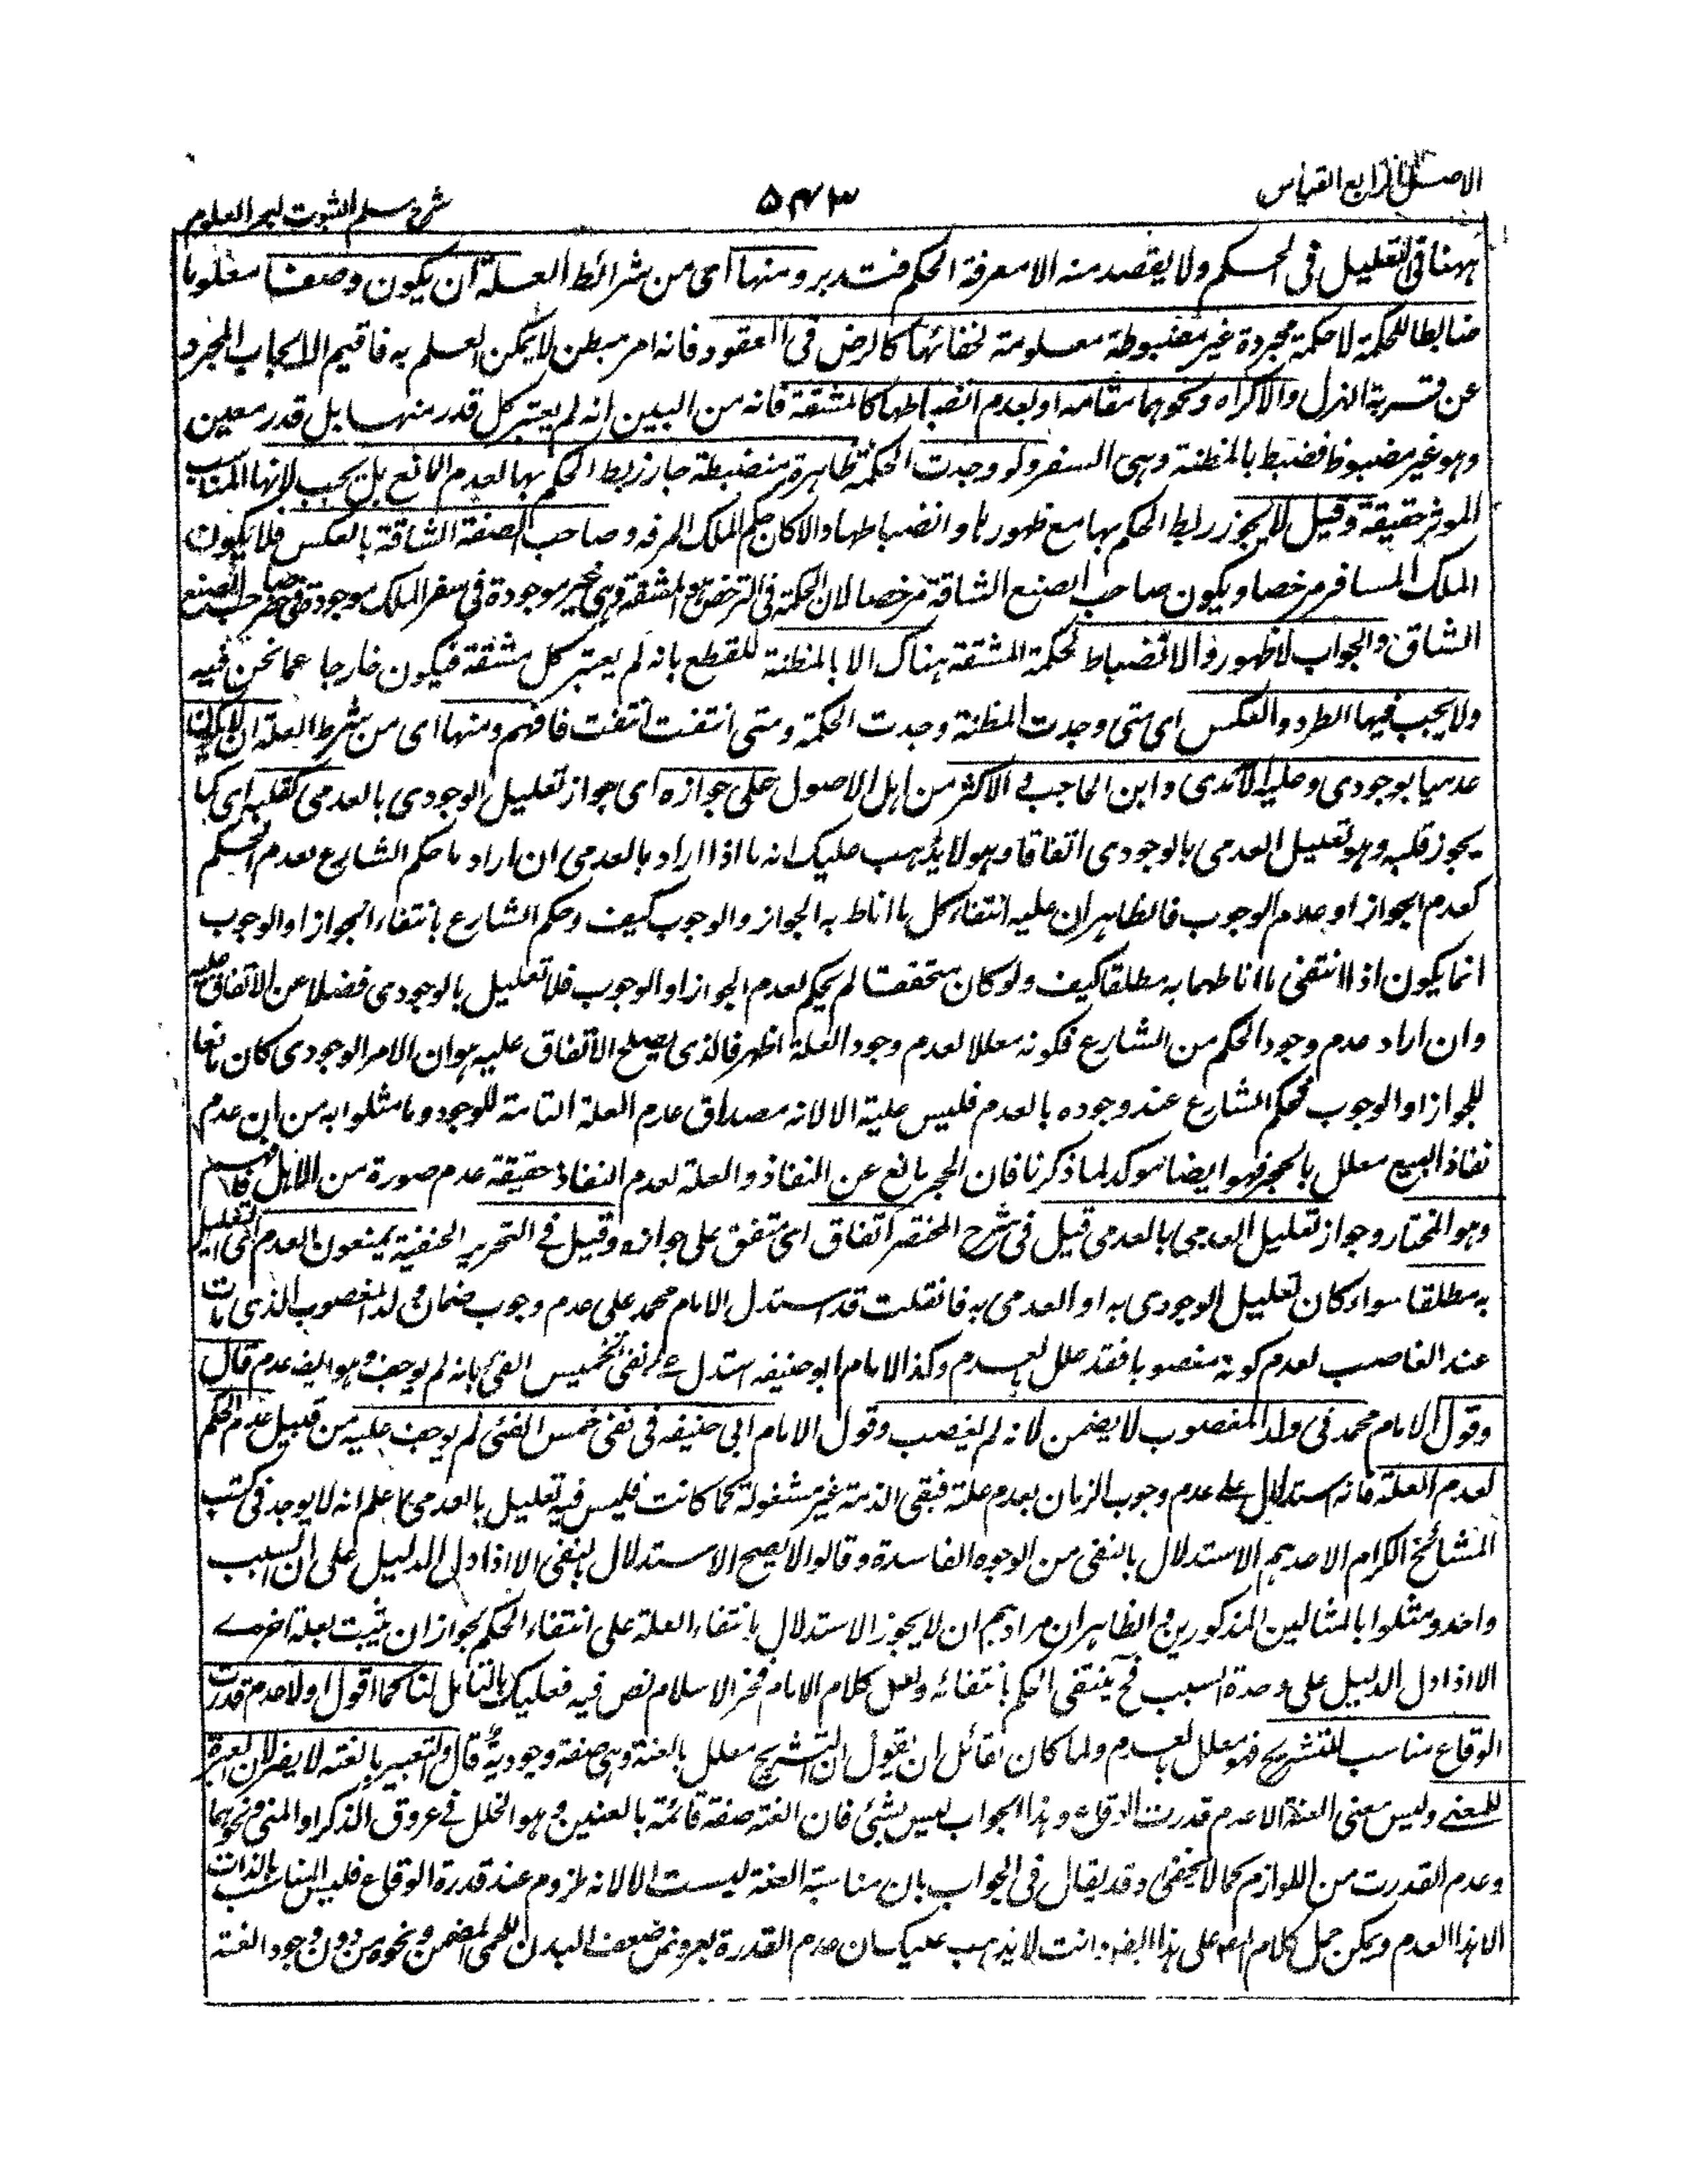 الاصل الرابع القياس
۵۴۳
شرح مسلم الثبوت لبحر العلوم
ههنا فى التعليل فى الحكم ولا يقصد منه الا معرفة الحكم فتدبر ومنها اى من شرائط العلة ان يكون وصفا معلوما
ضابطا للحكمة لا حكمة مجردة غير مضبوطة معلومة لخفائها كالرضى فى العقود فانه امر مبطن لا يمكن العلم به فاقيم الايجاب المجرد
عن قرينة الهزل والاكراه ونحوهما مقامه او لعدم انضباطها كالمشقة فانه من البين انه لم يعتبر كل قدر منها بل قدر معين
وهو غير مضبوط فضبط بالمظنة وهى السفر ولو وجدت الحكمة ظاهرة منضبطة جاز ربط الحكم بها لعدم المانع بل يجب لانها المناسب
الموثر حقيقة وقيل لا يجوز ربط الحكم بها مع ظهورها وانضباطها والا كان حكم الملك المرفه وصاحب الصنعة الشاقة بالعكس فلا يكون
الملك المسافر مرخصا ويكون صاحب الصنع الشاقة مرخصا لان الحكمة فى الترخص المشقة وهى غير موجودة فى سفر الملك موجودة فى حضر صاحب الصنع
الشاق والجواب لا ظهور والانضباط لحكمة المشقة هناك الا بالمظنة للقطع بانه لم يعتبر كل مشقة فيكون خارجا عما نحن فيه
ولا يجب فيها الطرد والعكس اى متى وجدت المظنة وجدت الحكمة ومتى انتفت انتفت فافهم ومنها اى من شرط العلة ان لا يكون
عدميا بوجودى وعليه الآمدى وابن الحاجب والاكثر من اهل الاصول على جوازه اى جواز تعليل الوجودى بالعدمى كقلبه اى كما
يجوز قلبه وهو تعليل العدمى بالوجودى اتفاقا وهو لا يذهب عليك انه ما اذا اراد بالعدمى ان اراد ما حكم الشارع بعدم الحكم
كعدم الجواز او عدم الوجوب فالظاهر ان علته انتفاء كل ما اناط به الجواز والوجوب كيف وحكم الشارع بانتفاء الجواز او الوجوب
انما يكون اذا انتفى ما اناطهما به مطلقا كيف ولو كان متحققا لم يحكم لعدم الجواز او الوجوب فلا تعليل بالوجودى فضلا عن الاتفاق عليه
وان اراد عدم وجود الحكم من الشارع فكونه معللا لعدم وجود العلة اظهر فالذى يصلح الاتفاق عليه هو ان الامر الوجودى كان مانعا
للجواز او الوجوب فحكم الشارع عند وجوده بالعدم فليس علية الا لانه مصداق عدم العلة التامة للوجود وما مثلوا به من ان عدم
نفاذ البيع معلل بالحجر فهو ايضا موكد لما ذكرنا فان الحجر مانع عن النفاذ والعلة لعدم النفاذ حقيقة عدم صدوره من الاهل فافهم
وهو المختار وجواز تعليل العدمى بالعدمى قيل فى شرح المختصر اتفاق اى متفق على جوازه وقيل فى التحرير الحنفية يمنعون العدم اى التعليل
به مطلقا سواء كان تعليل الوجودى به او العدمى به فان قلت قد استدل الامام محمد على عدم وجوب ضمان ولد المغصوب الذى مات
عند الغاصب لعدم كونه مغصوبا فقد علل بعدم وكذا الامام ابو حنيفه استدل على نفى تخميس الفئ بانه لم يوجف وهو ايضا عدم قال
وقول الامام محمد فى ولد المغصوب لا يضمن لانه لم يغصب وقول الامام ابى حنيفه فى نفى خمس الفئ لم يوجف عليه من قبيل عدم الحكم
لعدم العلة فانه استدلال على عدم وجوب الزمان بعدم علته فبقى الذمة غير مشغولة كما كانت فليس فيه تعليل بالعدمى اعلم انه لا يوجد فى كتب
المشائخ الكرام الا عدهم الاستدلال بالنفى من الوجوه الفاسدة وقالوا لا يصح الاستدلال بنفى الا اذا دل الدليل على ان السبب
واحد ومثلوا بالمثالين المذكورين والظاهر ان مرادهم ان لا يجوز الاستدلال بانتفاء العلة على انتفاء الحكم لجواز ان يثبت بعلة اخرى
الا اذا دل الدليل على وحدة السبب فح ينتفى الحكم بانتفائه ولعل كلام الامام فخر الاسلام نص فيه فعليك بالتأمل لنا كما اقول اولا عدم قدرت
الوقاع مناسب للتشريح فهو معلل بالعدم ولما كان لقائل ان يقول ان التشريح معلل بالعنة وهى صفة وجودية قال والتعبير بالعنة لا يضر لان العبرة
للمعنى وليس معنى العنة الا عدم قدرت الوقاع وهذا الجواب ليس بشئ فان العنة صفة قائمة بالعنين وهو الخلل فى عروق الذكر او المنى ونحوهما
وعدم القدرت من اللوازم كما لا يخفى وقد يقال فى الجواب بان مناسبة العنة ليست الا لانه ملزوم عند قدرة الوقاع فليس المناسب بالذات
الا هذا العدم ويمكن حمل كلام المصـ على هذا ايضا وانت لا يذهب عليك ان عدم القدرة بعروض ضعف البدن للحمى ونحوه من دون وجود العنة